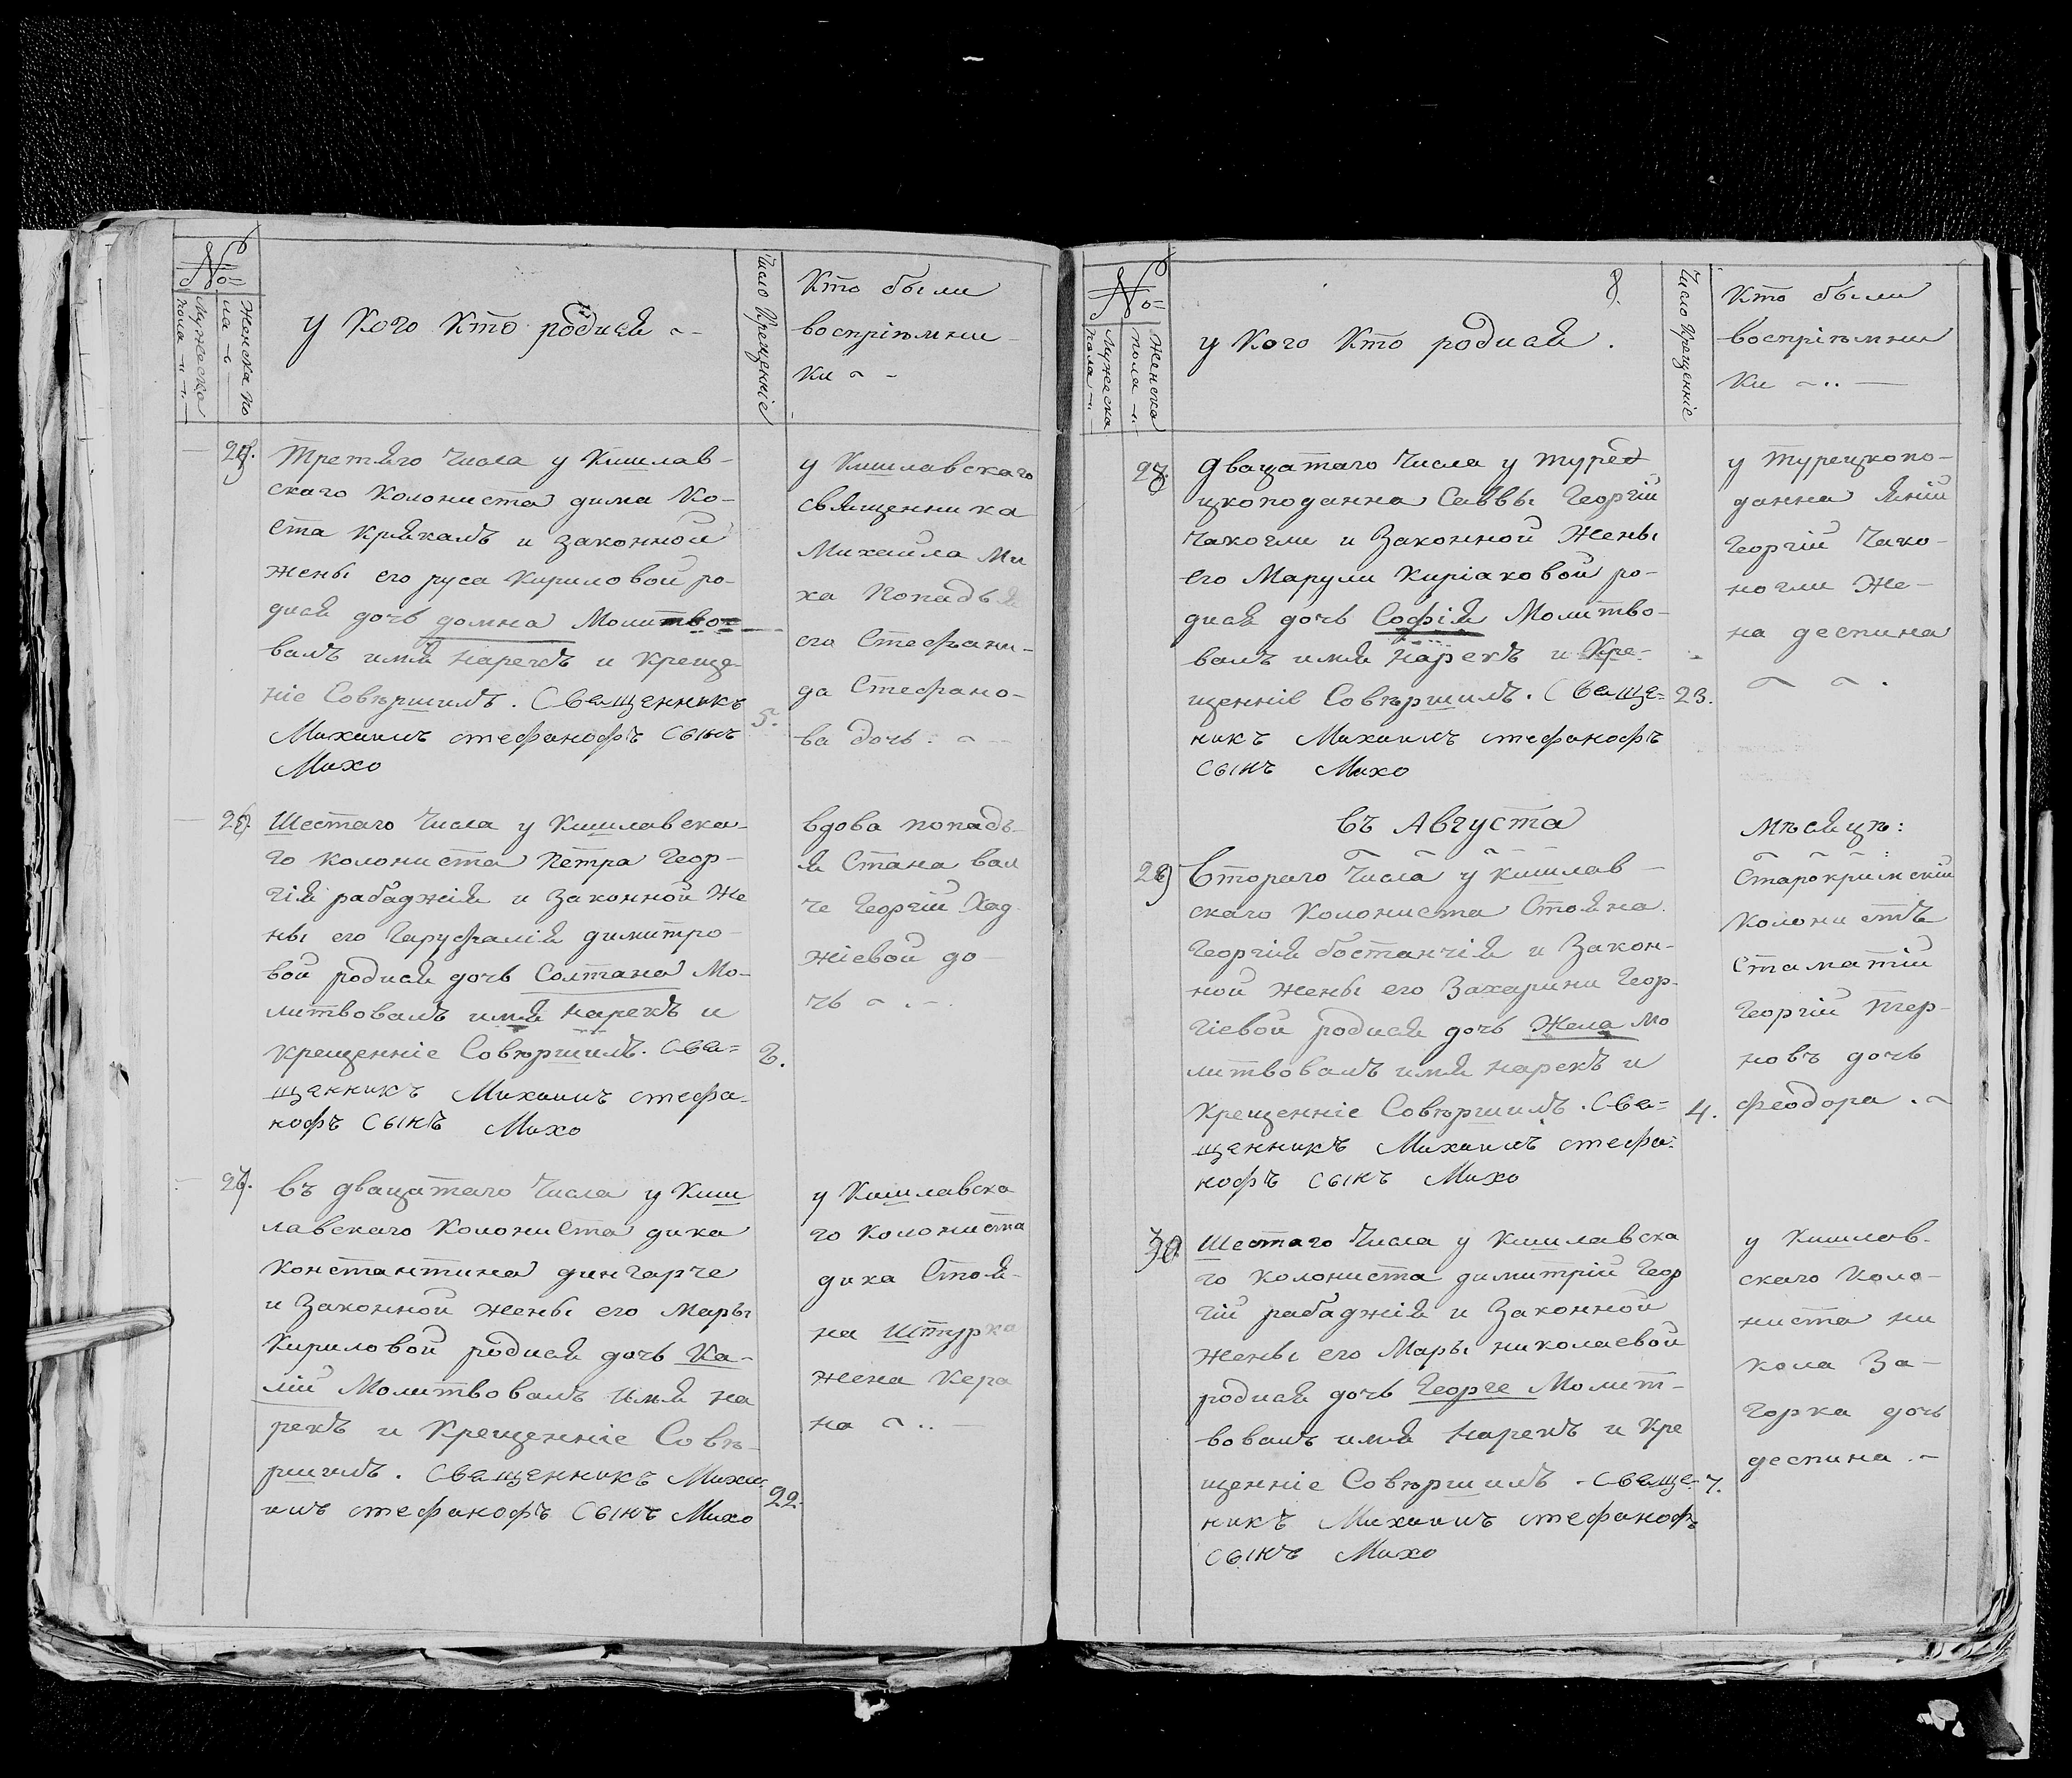 №
Женска по
ла
Мужеска
пола
у Кого Кто родися
Число Крещенніе
Кто были
воспріемни-
ки
Третяго Числа у Кишлав-
скаго Колониста дима Ко-
ста Крякалъ и законной
жены его руса Кириловой ро-
дися дочь домна Молитво
валъ имя нарекъ и Креще-
ніе Совѣршилъ. Свещенникъ
Михаилъ стефанофъ Сынъ
Михо
5.
у Кишлавскаго
священника
Михаила Ми
ха Попадья
его Стефани-
да Стефано-
ва дочь.
Шестаго Числа у Кишлавска-
го колониста Петра Геор-
гія рабаджія и Законной Же
ны его Гаруфалія димитро-
вой родися дочь Солтана Мо-
литвовалъ имя нарекъ и
крещенніе Совѣршилъ. Све-
щенникъ Михаилъ стефа-
нофъ Сынъ Михо
вдова попадь-
я Стана вал
че Георгій Хад
жіевой до-
чь
въ дващатаго Числа у Киш
лавскаго Колониста дика
Константина дингарче
и Законной жены его Мары
Кириловой родися дочь Ка-
лій Молитвовалъ имя на
рекъ и Крещенніе Совѣ-
ршилъ. Свещенникъ Миха-
илъ стефанофъ Сынъ Михо
22.
у Кишлавска
го колониста
дика Стоя-
на Штурка
жена Кера
на
№
Женска
пола
Мужеска
пола
8.
у Кого Кто родися.
Число Крещенніе
Кто были
воспріемни
ки
дващатаго Числа у туре
цкоподанна Саввы Георгій
Чакогли и Законной Жены
его Марули Киріаковой ро-
дися дочь Софія Молитво-
валъ имя нарекъ и Кре-
щенніе Совѣршилъ. Свеще-
никъ Михаилъ стефанофъ
Сынъ Михо
23.
у Турецкопо-
данна Яній
Георгій Чако-
ногли Же-
на деспина
въ Августа
Мѣсяцѣ:
29
Втораго Числа у Кишлав-
скаго Колониста Стояна
Георгія бостанчія и Закон-
ной жены его Захарини Геор-
гіевой родися дочь Жела Мо
литвовалъ имя нарекъ и
Крещенніе Совѣршилъ. Све-
щенникъ Михаилъ стефа-
нофъ Сынъ Михо
4.
Старокримскій
Колонистъ
Стаматій
Георгій Тер-
новъ дочь
феодора.
30
Шестаго Числа у Кишлавска
го колониста димитрій Геор
гій рабаджія и Законной
жены его Мары николаевой
родися дочь Георге Молит-
вовалъ имя нарекъ и Кре
щенніе Совѣршилъ. Свеще-
никъ Михаилъ стефанофъ
Сынъ Михо
7.
у Кишлав-
скаго Коло-
ниста ни
кола За-
горка дочь
деспина.